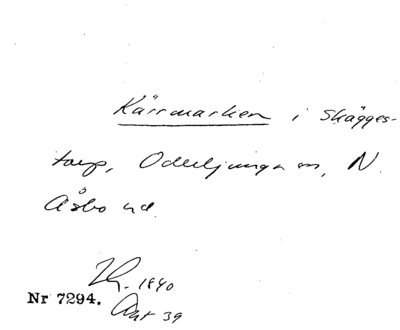 Kärrmarken i Skägges-
tarp, Oderljunga sn, N.
Åsbo hd.
1840
Nr 7294. Akt 39